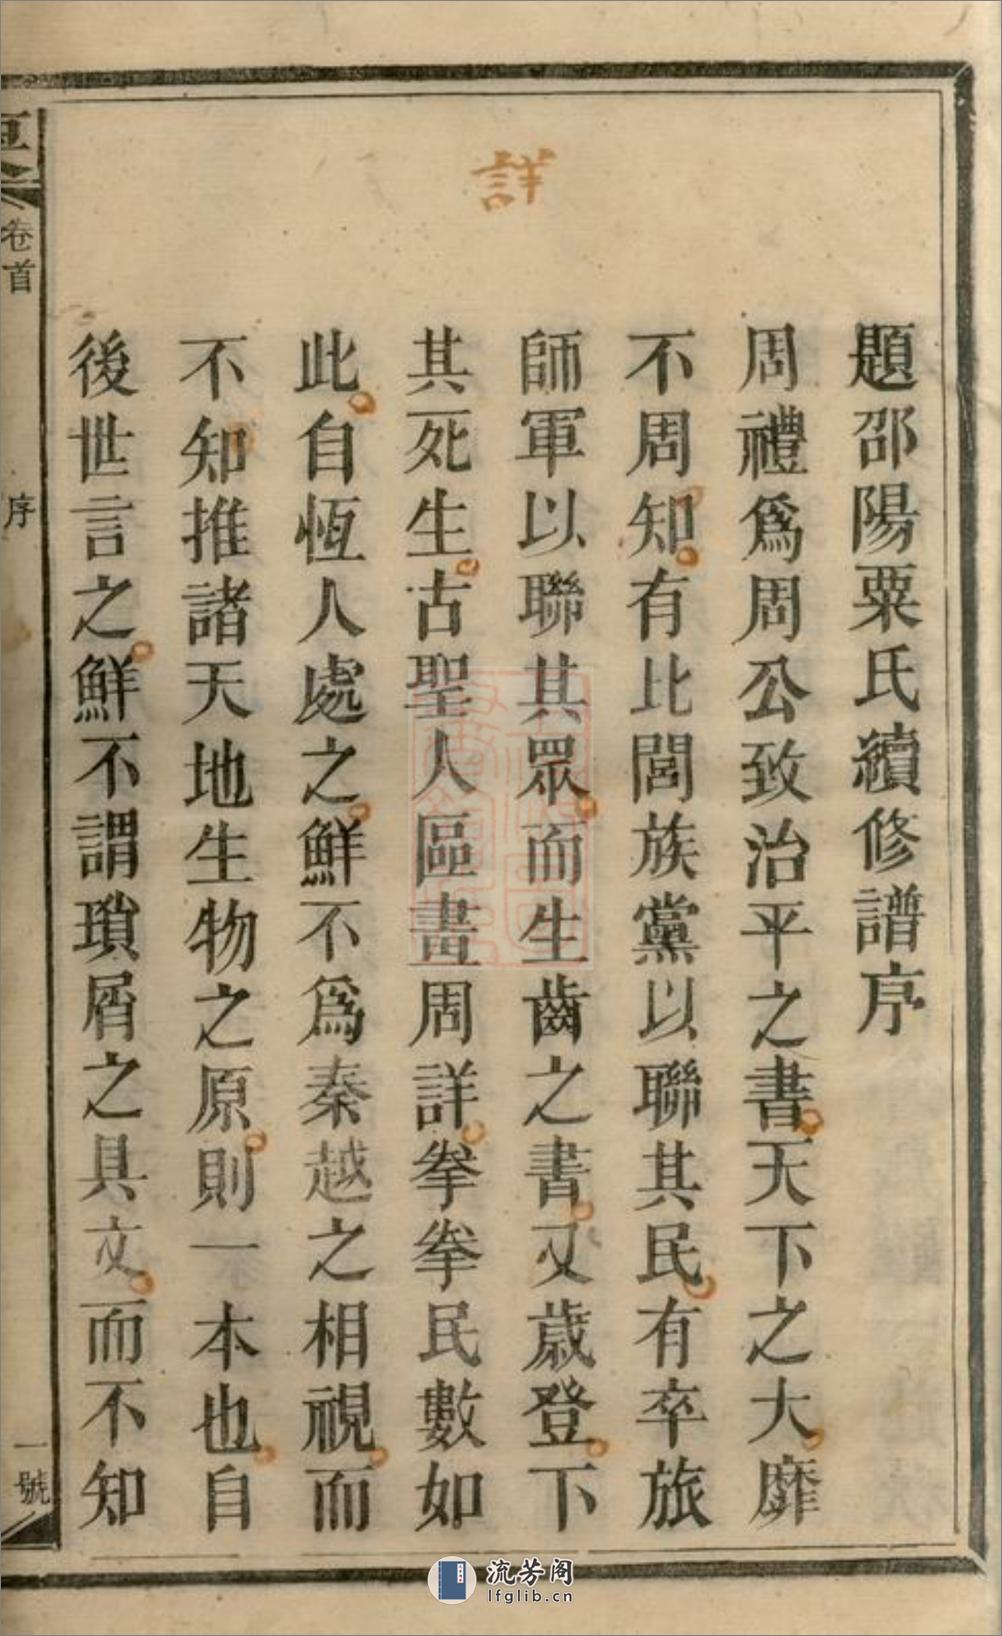 詳
題邵陽粟氏續修譜序
周禮爲周公致治平之書天下之大靡
不周知有比閭族黨以聯其民有卒旅
師軍以聯其眾而生齒之書又歲登下
其死生古聖人區畫周詳拳拳民數如
此自恆人處之鮮不爲秦越之相視而
不知推諸天地生物之原則一本也自
後世言之鮮不謂瑣屑之具文而不知
卷首
序
一號
流芳阁
lfglib.cn